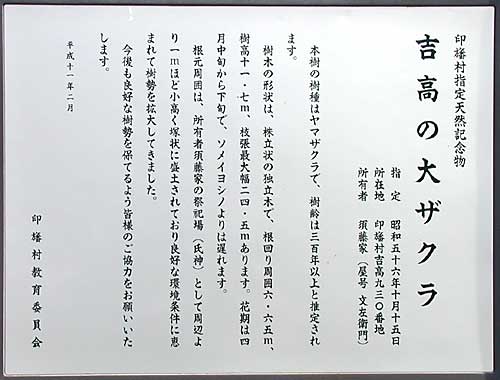 印旛村指定天然記念物
吉高の大ザクラ
指定 昭和五十六年十月十五日
所在地 印旛村吉高九三〇番地
所有者 須藤家（屋号 文左衛門）
本樹の樹種はヤマザクラで、樹齢は三百年以上と推定され
ます。
樹木の形状は、株立状の独立木で、根回り周囲六・六五m、
樹高十一・七m、枝張最大幅二四・五mあります。花期は四
月中旬から下旬で、ソメイヨシノよりは遅れます。
根元周囲は、所有者須藤家の祭祀場（氏神）として周辺よ
り一mほど小高く塚状に盛土されており良好な環境条件に恵
まれて樹勢を拡大してきました。
今後も良好な樹勢を保てるよう皆様のご協力をお願いいた
します。
平成十一年二月
印旛村教育委員会